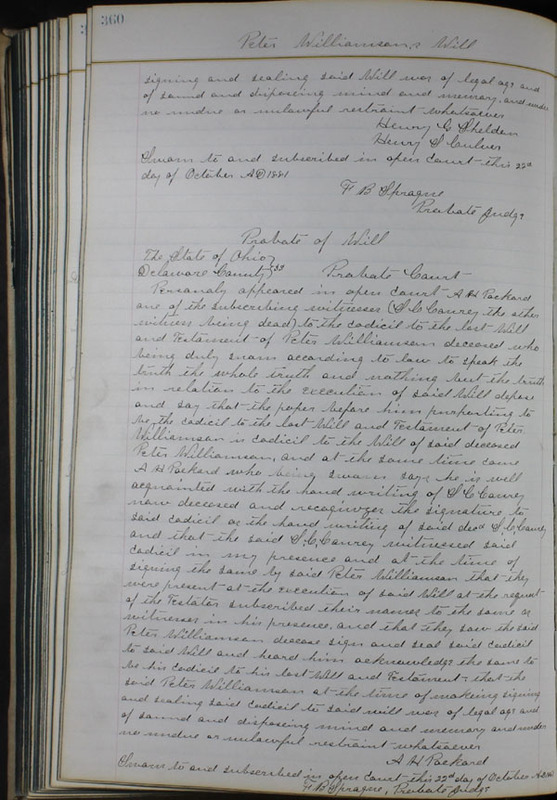 360
Peter Williamson,s Will
signing and sealing said Will was of legal age and
of sound and disposing mind and memory, and under
no undue or unlawful restraint whatsoever
Henry C Sheldon
Henry S Culver
Sworn to and subscribed in open Court this 22d
day of October AD 1881
F B Sprague
Probate Judge
Probate of Will
The State of Ohio
Delaware County SS Probate Court
Personaly appeared in open Court A H Packard
one of the subscribing witnesses (S. C. Conrey the other
witness being dead) to the codicil to the last Will
and Testament of Peter Williamson deceased who
being duly sworn according to law to speak the
truth the whole truth and nothing but the truth
in relation to the execution of said Will depose
and say that the paper before him purporting to
be, the codicil to the last Will and Testament of Peter
Williamson is codicil to the Will of said deceased
Peter Williamson, and at the same time came
A H Packard who being sworn says he is well
acquainted with the hand writing of S. C Conrey
now deceased and recognizes the signature to
said codicil as the hand writing of said decd S. C. Conrey
and that the said S. C. Conrey witnessed said
codicil in my presence and at the time of
signing the same by said Peter Williamson that they
were present at the execution of said Will at the request
of the Testator subscribed their names to the same as
witnesses in his presence, and that they saw the said
Peter Williamson decease sign and seal said Codicil
to said Will and heard him acknowledge the same to
be his codicil to his last Will and Testament that the
said Peter Williamson at the time of making signing
and sealing said Codicil to said will was of legal age and
of sound and disposing mind and memory and under
no undue or unlawful restraint whatsoever
A H Packard
Sworn to and subscribed in open court this 22d day of October AD
F B Sprague, Probate Judge